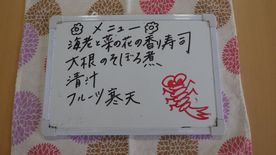 メニュー
海老と菜の花の香り寿司
大根のそぼろ煮
清汁
フルーツ寒天